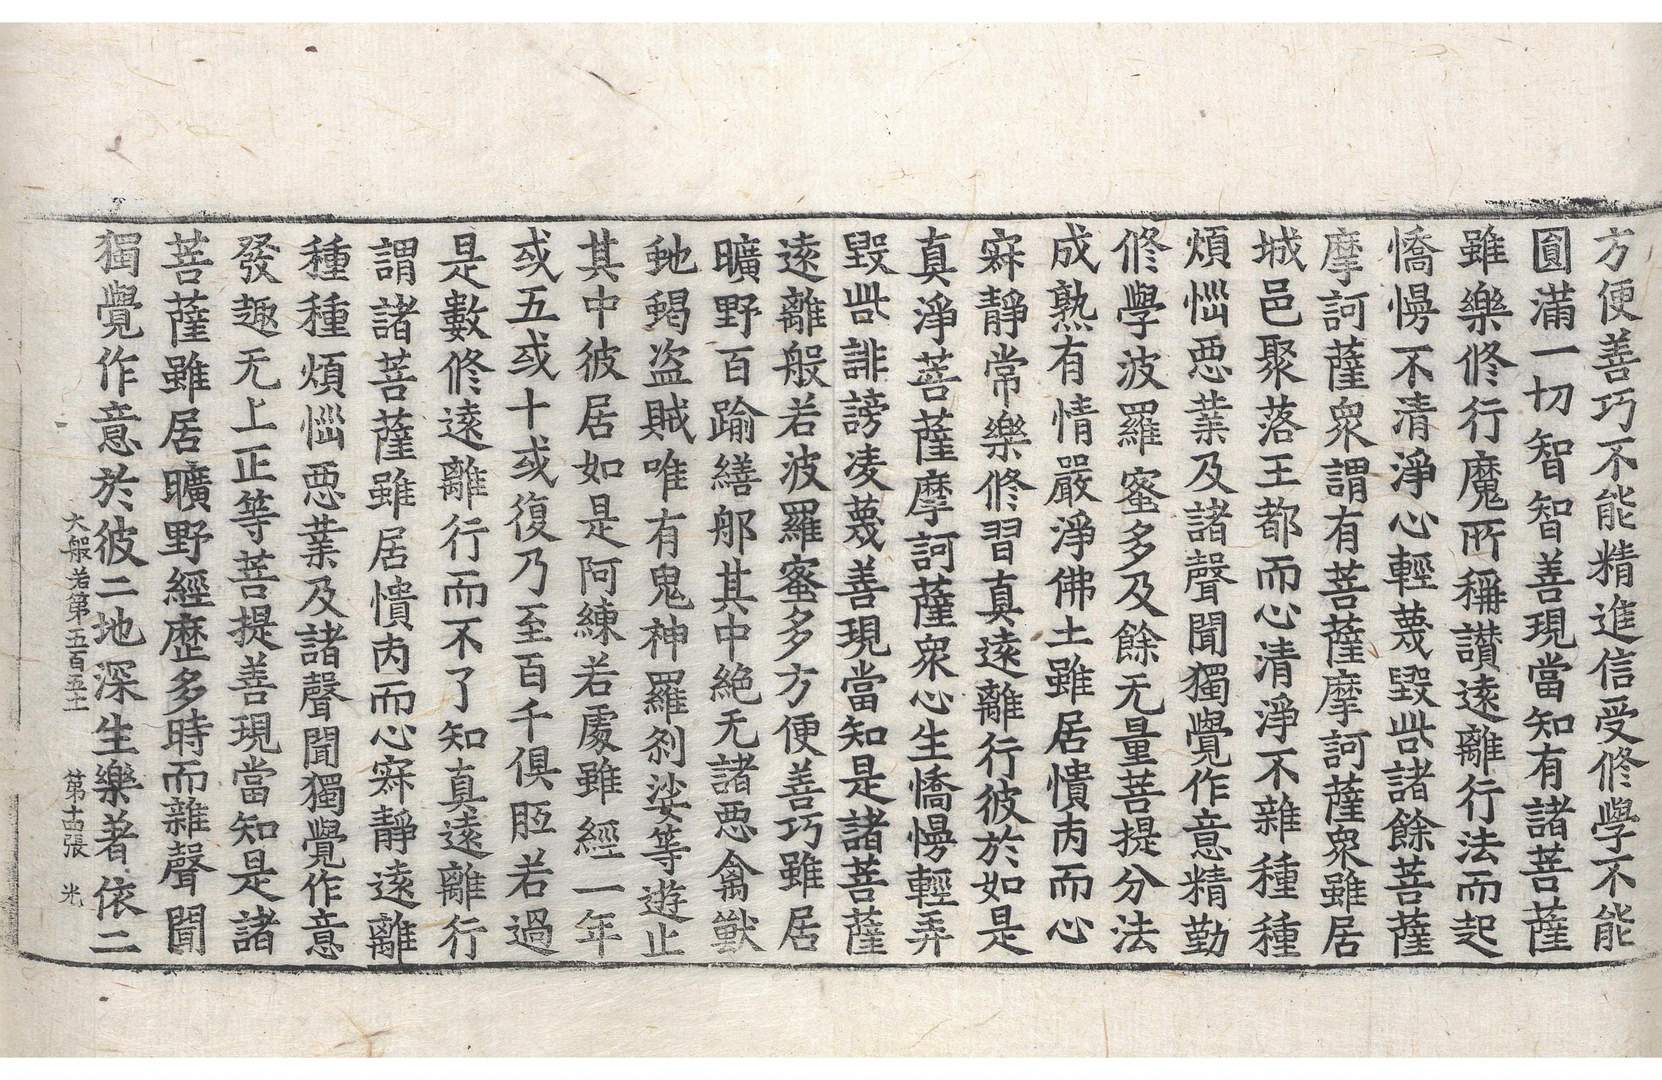 方便善巧不能精進信受修學不能
圓滿一切智智善現當知有諸菩薩
雖樂修行魔所稱讃遠離行法而起
憍慢不清淨心輕蔑毀呰諸餘菩薩
摩訶薩衆謂有菩薩摩訶薩衆雖居
城邑聚落王都而心清淨不雜種種
煩惱惡業及諸聲聞獨覺作意精勤
修學波羅蜜多及餘无量菩提分法
成熟有情嚴淨佛土雖居憒丙而心
寂靜常樂修習真遠離行彼於如是
真淨菩薩摩訶薩衆心生憍慢輕弄
毀呰誹謗凌蔑善現當知是諸菩薩
遠離般若波羅蜜多方便善巧雖居
曠野百踰繕那其中絶无諸惡禽獸
虵蝎盗賊唯有鬼神羅刹娑等遊止
其中彼居如是阿練若處雖經一年
或五或十或復乃至百千俱胝若過
是數修遠離行而不了知真遠離行
謂諸菩薩雖居憒丙而心寂靜遠離
種種煩惱惡業及諸聲聞獨覺作意
發趣无上正等菩提善現當知是諸
菩薩雖居曠野經歷多時而雜聲聞
獨覺作意於彼二地深生樂著依二
大般若第五百五十 第十四張 光